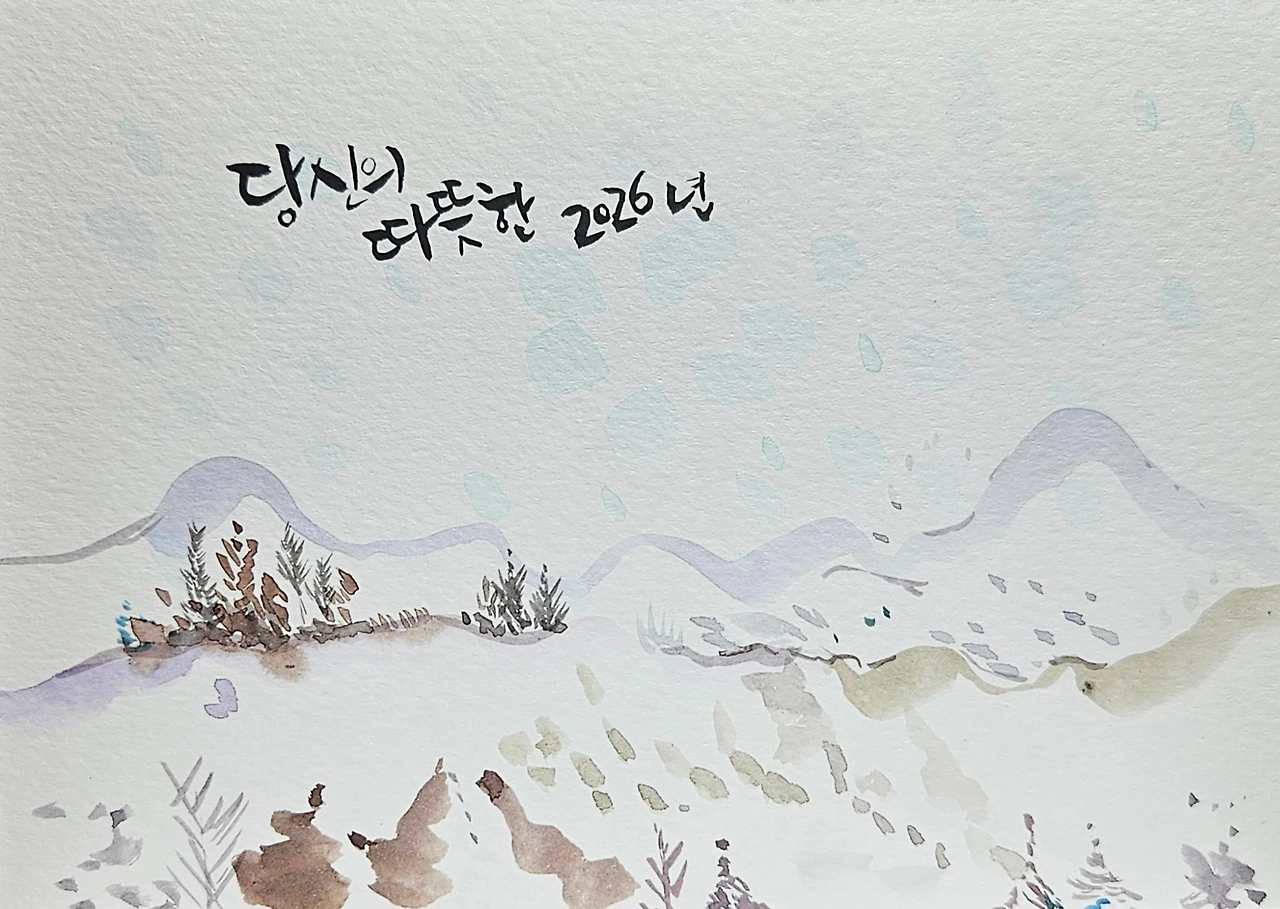 당신의
따뜻한 2026년